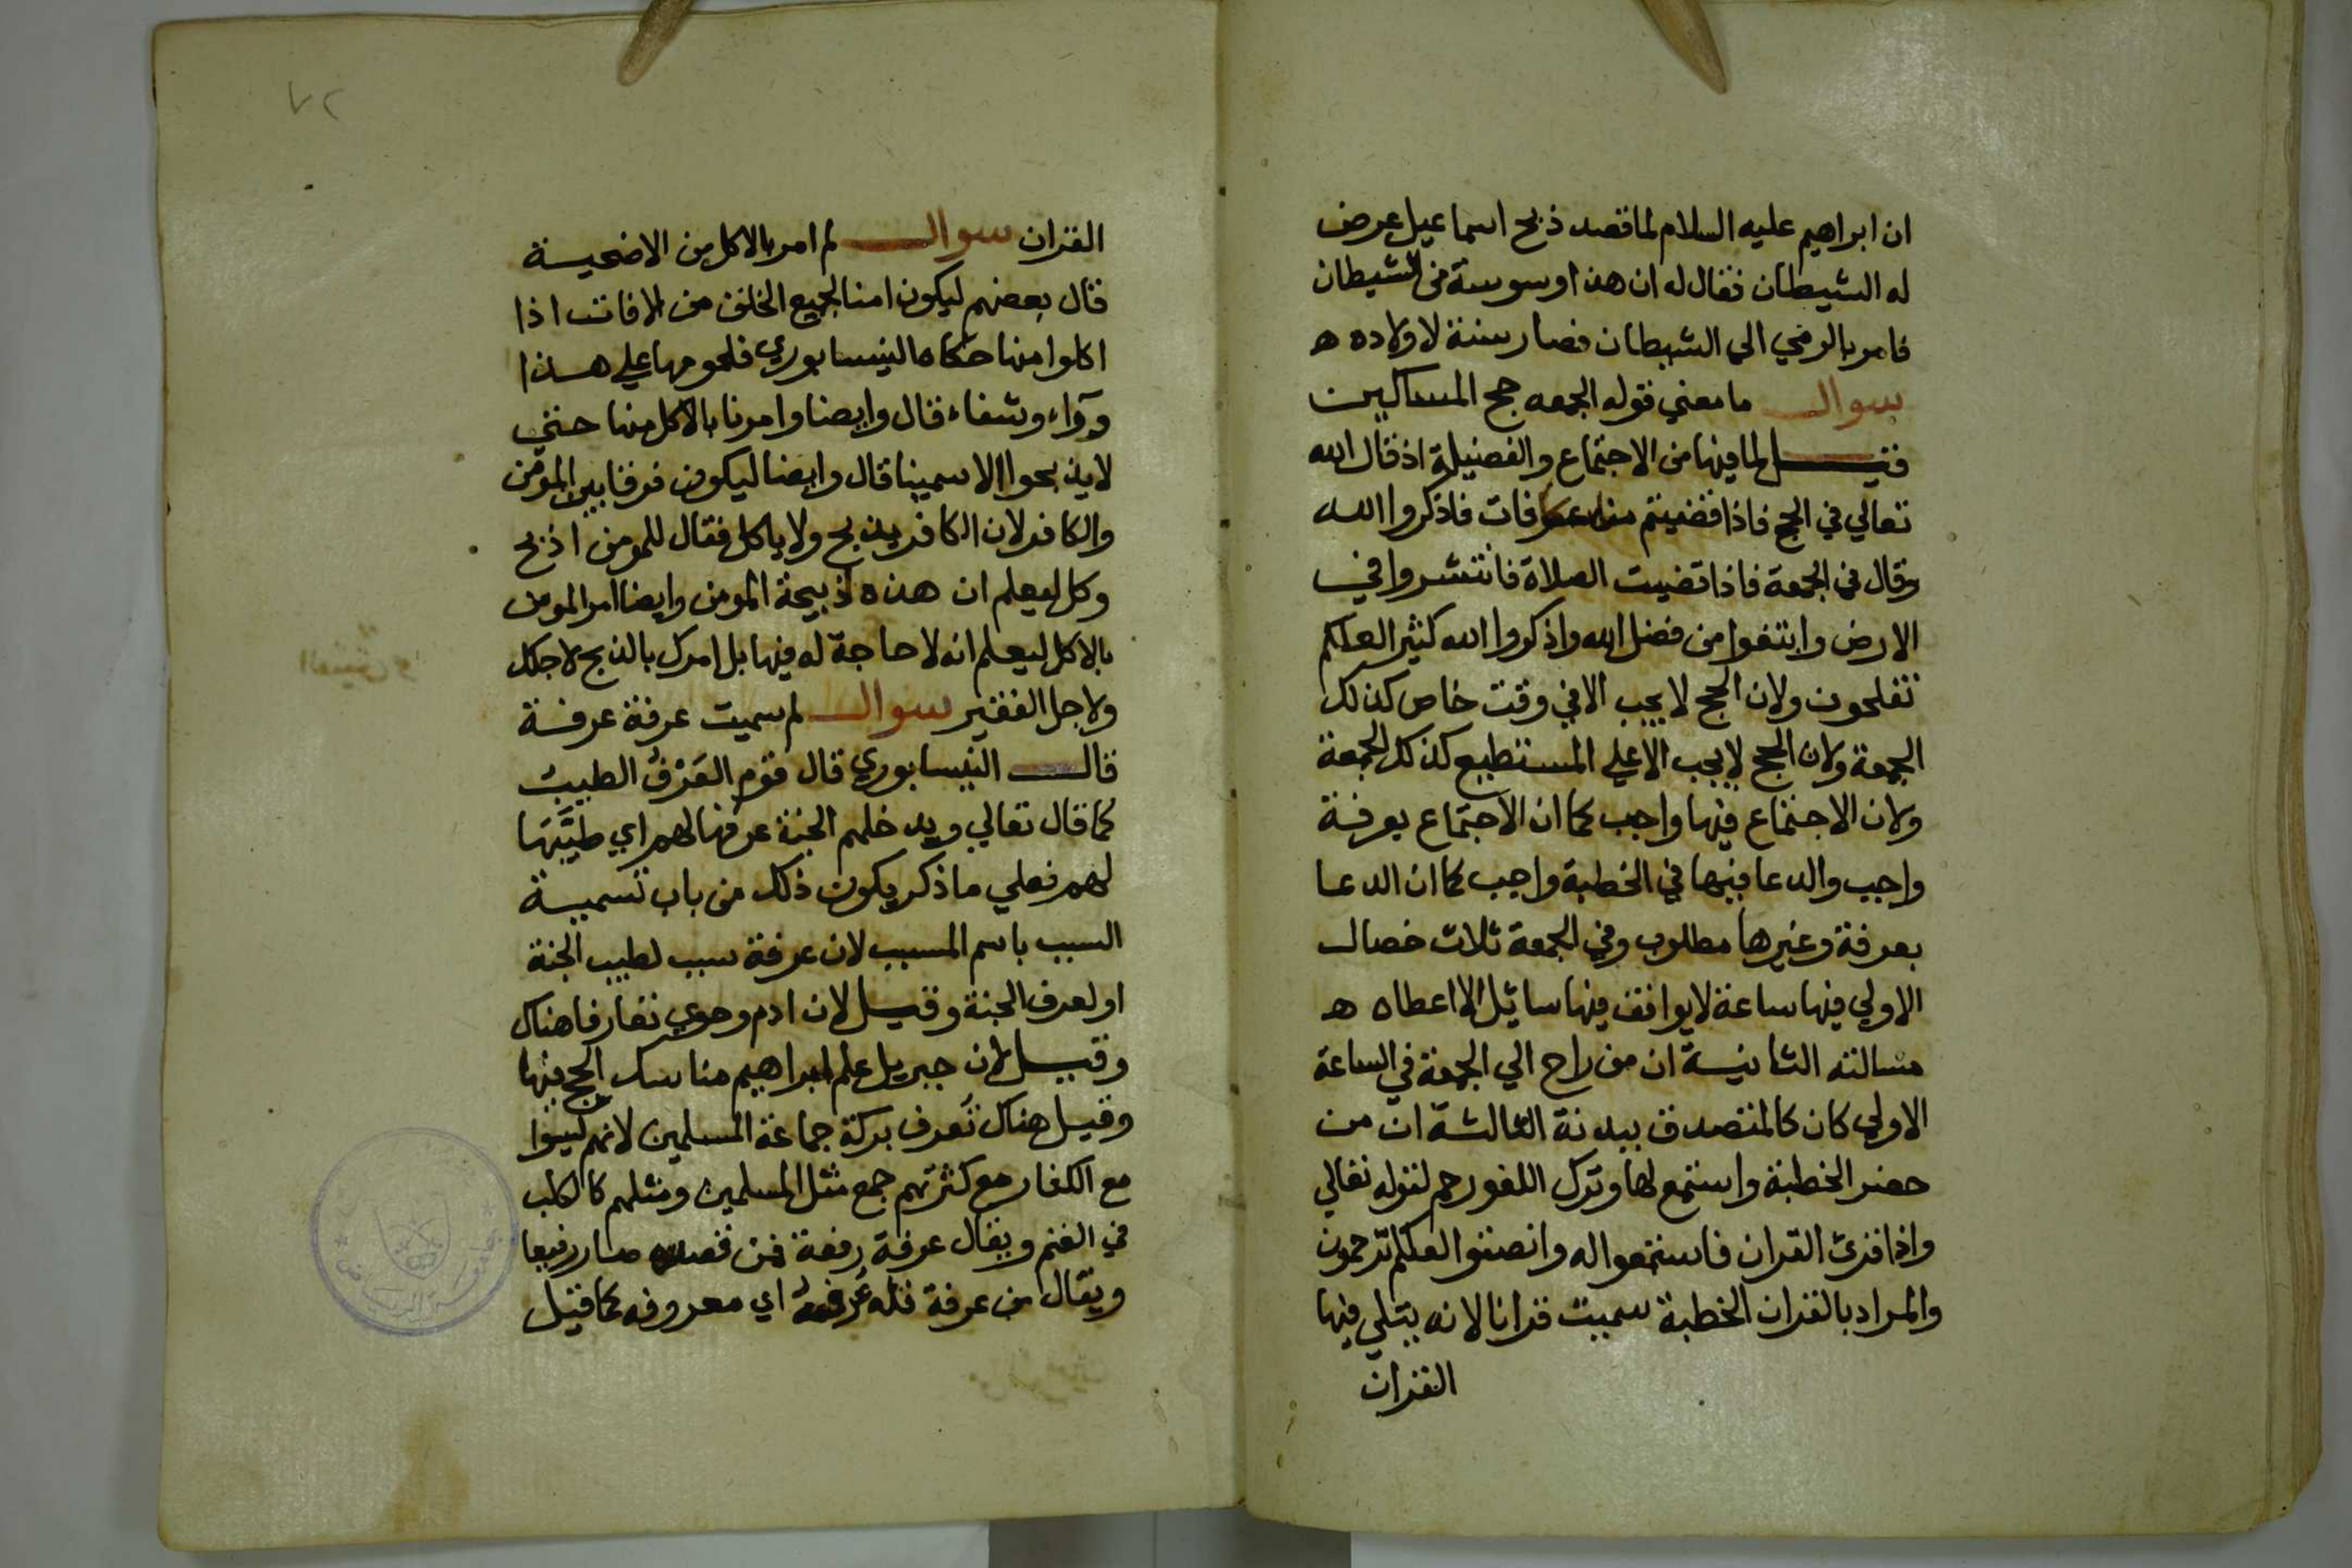 ان ابراهيم عليه السلام لما قصد ذبح اسماعيل عرض
له الشيطان فقال له ان هذا وسوسة من الشيطان
فامر بالرمي الي الشيطان فصار سنة لاولاده ه
سوال ما معني قوله الجمعه حج المساكين
فقيل لما فيها من الاجتماع والفضيلة اذ قال الله
تعالي في الحج فاذا قضيتم فاذكروا الله
وقال في الجمعة فاذا قضيت الصلاة فانتشروا في
الارض وابتغوا من فضل الله واذكروا الله كثيرا لعلكم
تفلحون ولان الحج لا يجب الا في وقت خاص كذلك
الجمعة ولان الحج لا يجب الا علي المستطيع كذلك الجمعة
ولان الاجتماع فيها واجب كما ان الاجتماع بعرفة
واجب والدعا فيها في الخطبة واجب كما ان الدعا
بعرفة وغيرها مطلوب وفي الجمعة ثلاث خصال
الاولي فيها ساعة لا يوافق فيها سائل الا اعطاه ه
مسالته الثانية ان من راح الي الجمعة في الساعة
الاولي كان كالمتصدق ببدنة الثالثة ان من
حضر الخطبة واستمع لها وترك اللغو رحم لقوله تعالي
واذا قرئ القران فاستمعوا له وانصتوا لعلكم ترحمون
والمراد بالقران الخطبة سميت قرانا لانه يتلي فيها
القران
٧٢
القران سوال لم امر بالاكل من الاضحية
قال بعضهم ليكون امنا لجميع الخلق من الافات اذا
اكلوا منها حكاه النيسابوري فلحومها علي هذا
دوآء وشفاء قال وايضا وامرنا بالاكل منها حتي
لا يذبحوا الا سمينا قال وايضا ليكون فرقا بين المومن
والكافر لان الكافر يذبح ولا ياكل فقال للمومن اذبح
وكل ليعلم ان هذه ذبيحة المومن وايضا امر المومن
بالاكل ليعلم انه لا حاجة له فيها بل امرك بالذبح لاجلك
ولاجل الفقير سوال لم سميت عرفة عرفة
قال النيسابوري قال قوم العَرْفُ الطيب
كما قال تعالي ويدخلهم الجنة عرفها لهم اي طيَّبَهَا
لهم فعلي ما ذكر يكون ذلك من باب تسمية
السبب باسم المسبب لان عرفة سبب لطيب الجنة
او لعرف الجنة وقيل لان ادم وحوي تعارفا هناك
وقيل لان جبريل علم ابراهيم مناسك الحج فيها
وقيل هناك تعرف بركة جماعة المسلمين لانهم ليسوا
مع الكفار مع كثرتهم جمع مثل المسلمين ومثلهم كالكلب
في الغنم ويقال عرفة رفعة فمن قصده صار رفيعا
ويقال من عرفة فله اي معروفه كما قيل